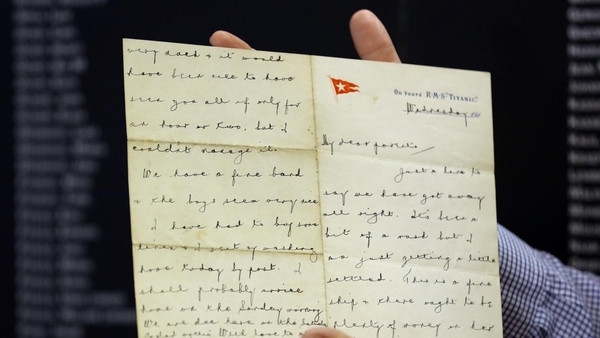 On board R.M.S. "TITANIC."
Wednesday 191
My dear parents
Just a line to
say we have got away
all right. It's been a
bit of a rush but I
am just getting a little
settled. This is a fine
ship & there ought to be
plenty of money in her
very much & it would
have been nice to have
seen you all if only for
an hour or two, but I
couldn't manage it.
We have a fine band
& the boys seem very nice
I have had to buy some
linen & I sent my washing
home today by post. I
shall probably arrive
home on the Sunday morning
We are due here on the Saturday